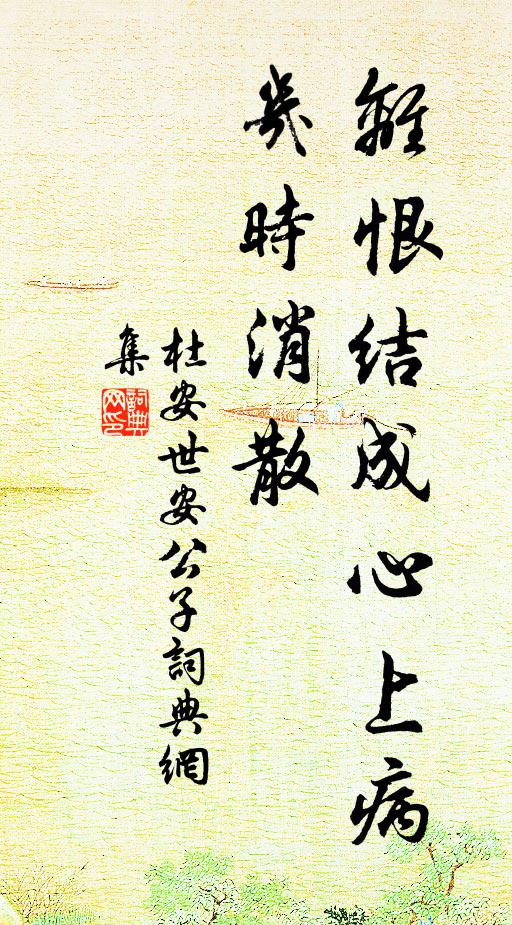 離恨結成心上病
幾時消散
杜安世安公子詞典網
集
詞典
网印